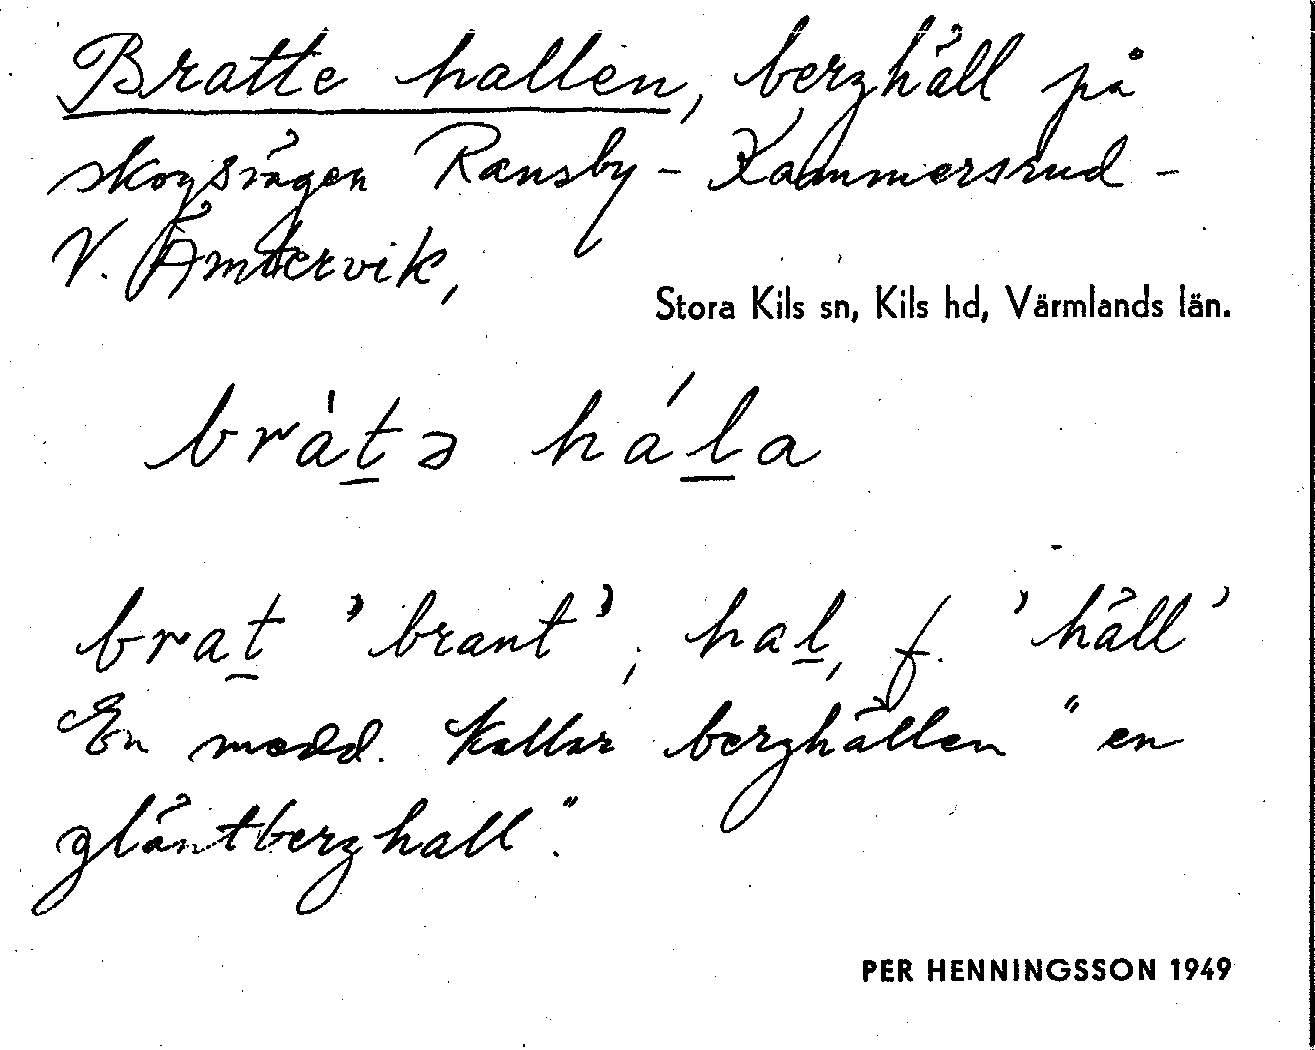 Bratte hallen, berghäll på
skogsvägen Ransby - Kammersrud -
V. Ämtervik,
Stora Kils sn, Kils hd, Värmlands län.
bràt̲ə hál̲a
brat̲ 'brant', hal̲, f. 'häll'
En medd. kallar berghällen "en
gläntberghall".
PER HENNINGSSON 1949